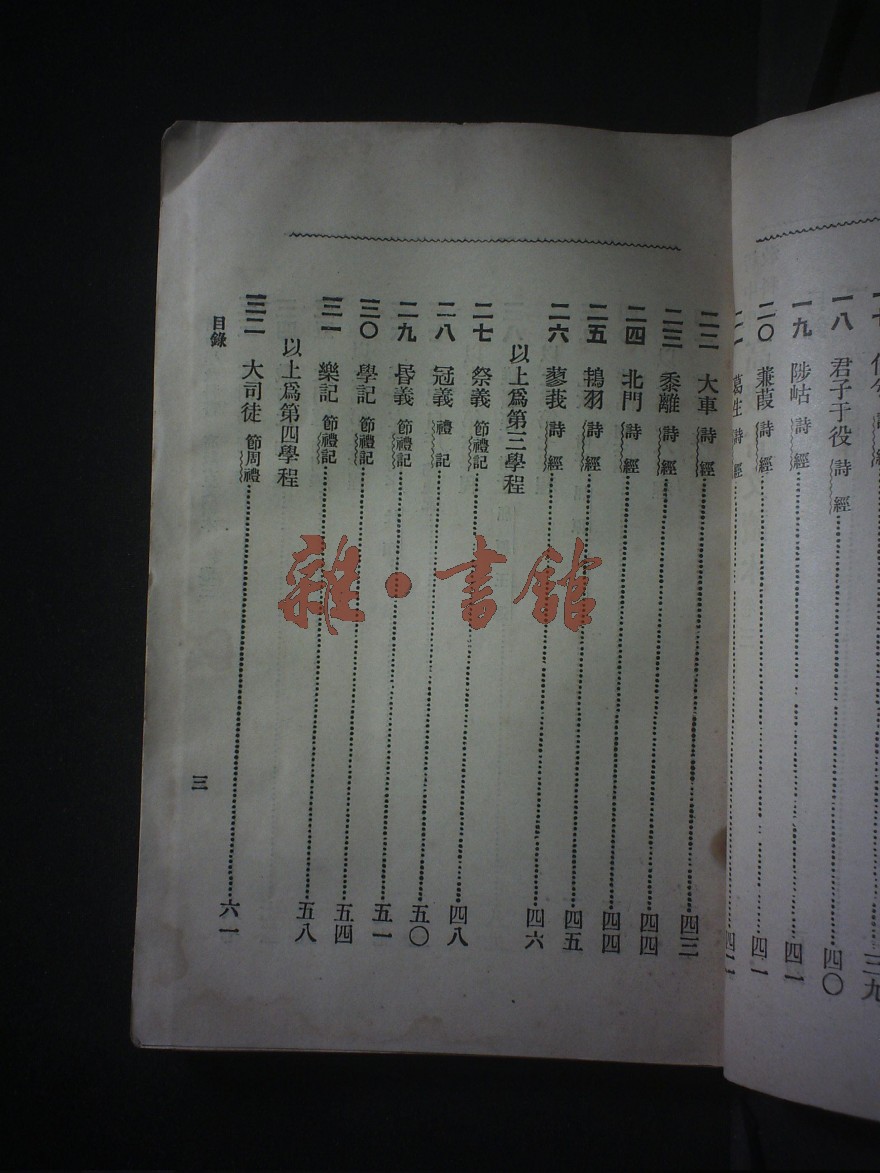 三九
一八 君子于役 詩經 四〇
一九 陟岵 詩經 四一
二〇 蒹葭 詩經 四一
二一 葛生 詩經 四二
二二 大車 詩經 四三
二三 黍離 詩經 四四
二四 北門 詩經 四四
二五 鴇羽 詩經 四五
二六 蓼莪 詩經 四六
以上爲第三學程
二七 祭義 節禮記 四八
二八 冠義 禮記 五〇
二九 昬義 節禮記 五一
三〇 學記 節禮記 五四
三一 樂記 節禮記 五八
以上爲第四學程
三二 大司徒 節周禮 六一
目錄 三
雜·書館